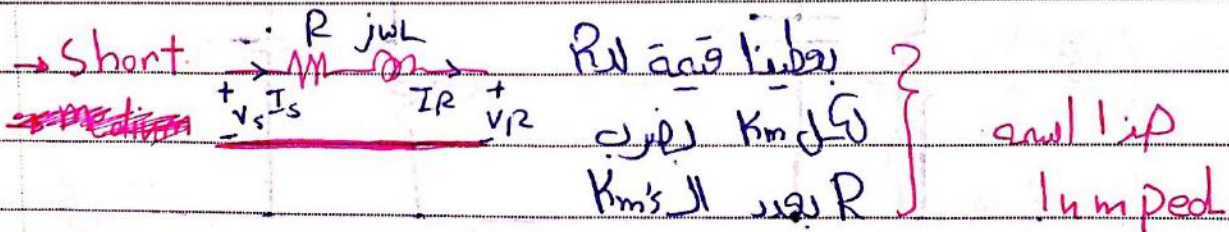 → Short R jωL
+ Vs - Is IR + VR
→ medium
بعطينا قيمة الـ R
لكل Km بضرب
R بعدد الـ Km's
هذا اسمه
lumped